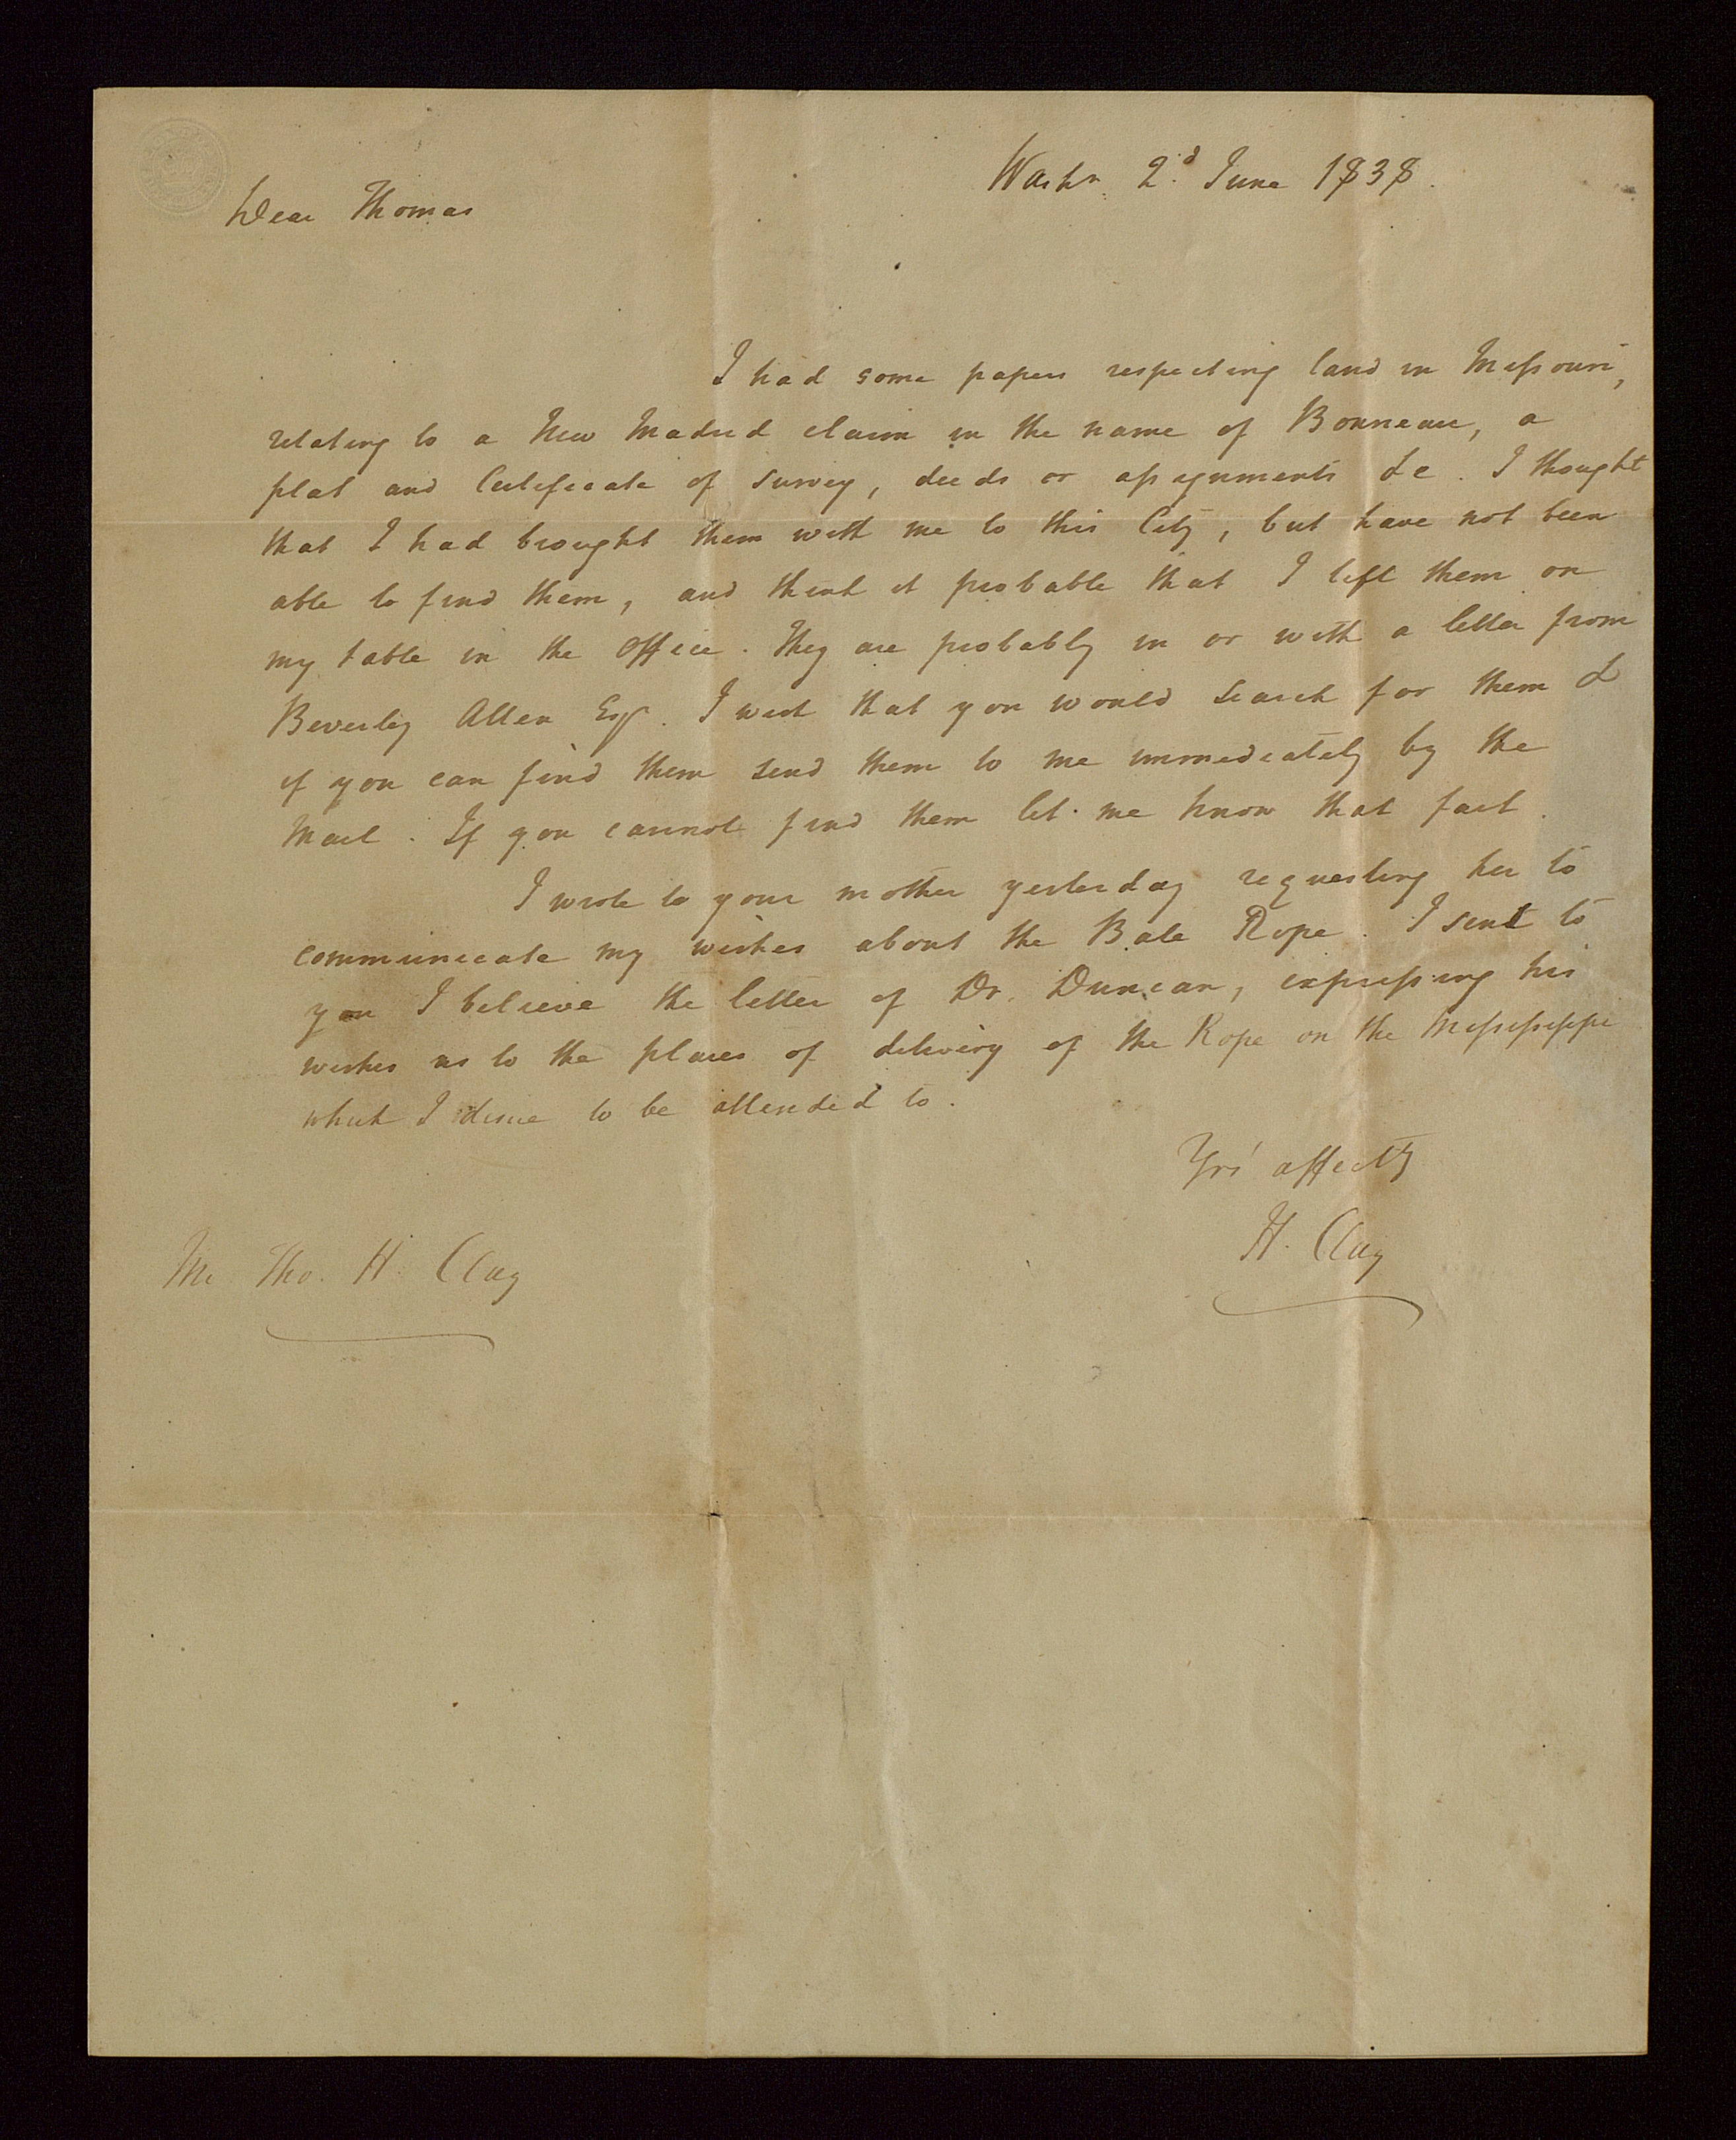 Washn. 2d. June 1838.
Dear Thomas
I had some papers respecting land in Missouri,
relating to a New Madrid claim in the name of Bonneau, a
plat and Certificate of survey, deeds or assignments &c. I thought
that I had brought them with me to this City, but have not been
able to find them, and think it probable that I left them on
my table in the Office. They are probably in or with a letter from
Beverley Allen Esqr. I wish that you would search for them &
if you can find them send them to me immediately by the
Mail. If you cannot find them let me know that fact.
I wrote to your mother yesterday requesting her to
communicate my wishes about the Bale Rope. I sent to
you I believe the letter of Dr. Duncan, expressing his
wishes as to the places of delivery of the Rope on the Mississippi
which I desire to be attended to.
Yrs' affecty
H. Clay
Mr Tho. H. Clay